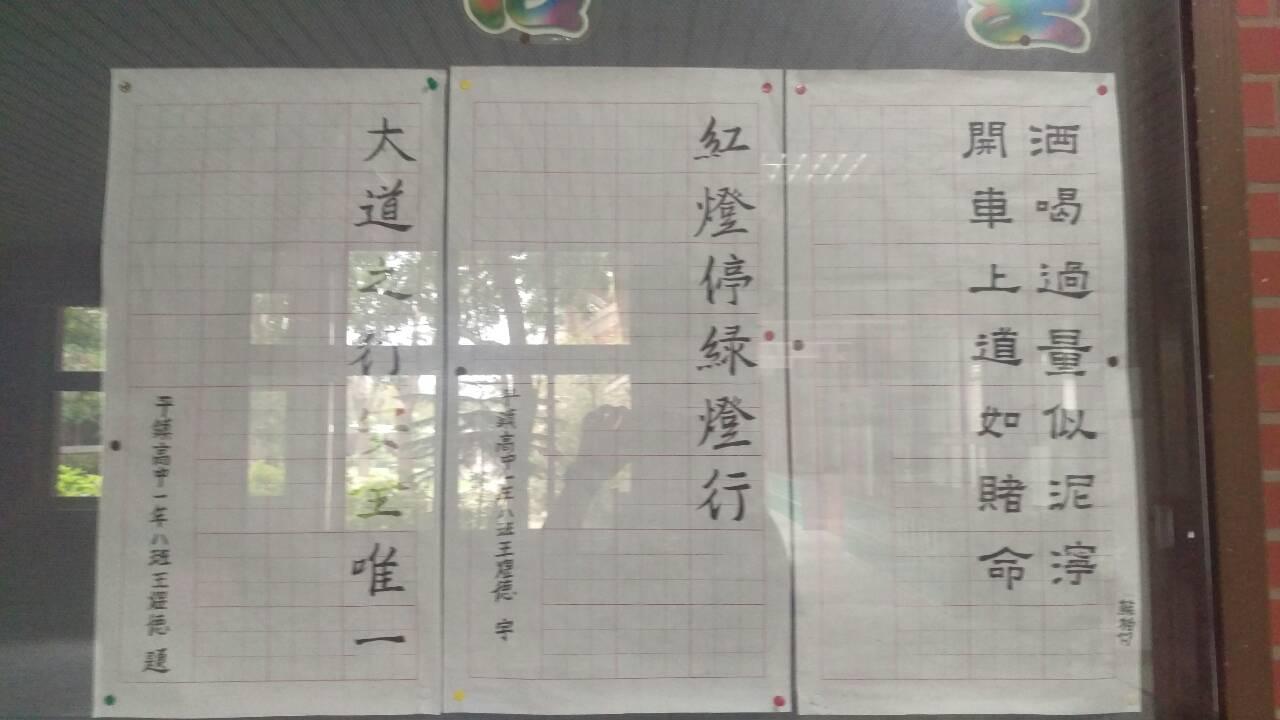 酒喝過量似泥濘
開車上道如賭命
紅燈停綠燈行
平鎮高中一年八班王
字
大道之行安全唯一
平鎮高中一年八班王
題